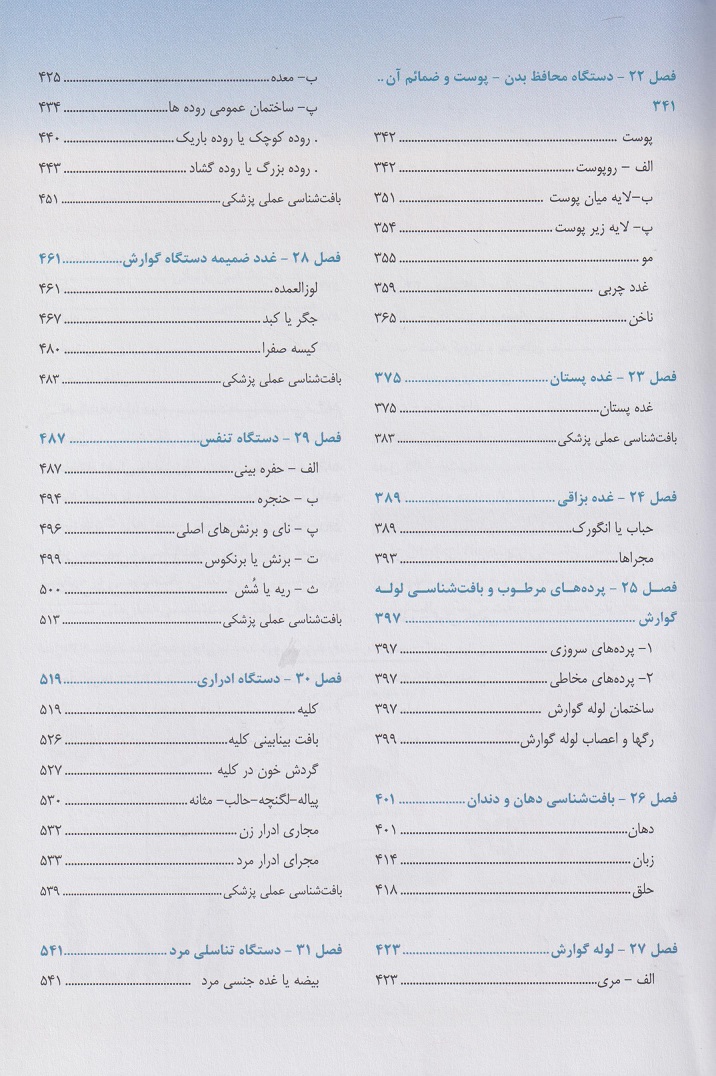 فصل ۲۲ - دستگاه محافظ بدن - پوست و ضمائم آن ..
۳۴۱
پوست ........ ۳۴۲
الف - روپوست ........ ۳۴۲
ب-لایه میان پوست ........ ۳۵۱
پ- لایه زیر پوست ........ ۳۵۴
مو ........ ۳۵۵
غدد چربی ........ ۳۵۹
ناخن ........ ۳۶۵
فصل ۲۳ - غده پستان ........ ۳۷۵
غده پستان ........ ۳۷۵
بافت‌شناسی عملی پزشکی ........ ۳۸۳
فصل ۲۴ - غده بزاقی ........ ۳۸۹
حباب یا انگورک ........ ۳۸۹
مجراها ........ ۳۹۳
فصل ۲۵ - پرده‌های مرطوب و بافت‌شناسی لوله
گوارش ........ ۳۹۷
۱- پرده‌های سروزی ........ ۳۹۷
۲- پرده‌های مخاطی ........ ۳۹۷
ساختمان لوله گوارش ........ ۳۹۷
رگها و اعصاب لوله گوارش ........ ۳۹۹
فصل ۲۶ - بافت‌شناسی دهان و دندان ........ ۴۰۱
دهان ........ ۴۰۱
زبان ........ ۴۱۴
حلق ........ ۴۱۸
فصل ۲۷ - لوله گوارش ........ ۴۲۳
الف - مری ........ ۴۲۳
ب- معده ........ ۴۲۵
پ- ساختمان عمومی روده ها ........ ۴۳۴
. روده کوچک یا روده باریک ........ ۴۴۰
. روده بزرگ یا روده گشاد ........ ۴۴۳
بافت‌شناسی عملی پزشکی ........ ۴۵۱
فصل ۲۸ - غدد ضمیمه دستگاه گوارش ........ ۴۶۱
لوزالعمده ........ ۴۶۱
جگر یا کبد ........ ۴۶۷
کیسه صفرا ........ ۴۸۰
بافت‌شناسی عملی پزشکی ........ ۴۸۳
فصل ۲۹ - دستگاه تنفس ........ ۴۸۷
الف - حفره بینی ........ ۴۸۷
ب - حنجره ........ ۴۹۴
پ - نای و برنش‌های اصلی ........ ۴۹۶
ت - برنش یا برنکوس ........ ۴۹۹
ث - ریه یا شُش ........ ۵۰۰
بافت‌شناسی عملی پزشکی ........ ۵۱۳
فصل ۳۰ - دستگاه ادراری ........ ۵۱۹
کلیه ........ ۵۱۹
بافت بینابینی کلیه ........ ۵۲۶
گردش خون در کلیه ........ ۵۲۷
پیاله-لگنچه-حالب- مثانه ........ ۵۳۰
مجاری ادرار زن ........ ۵۳۲
مجرای ادرار مرد ........ ۵۳۳
بافت‌شناسی عملی پزشکی ........ ۵۳۹
فصل ۳۱ - دستگاه تناسلی مرد ........ ۵۴۱
بیضه یا غده جنسی مرد ........ ۵۴۱